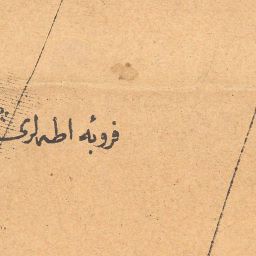 فروئه اطه‌لری